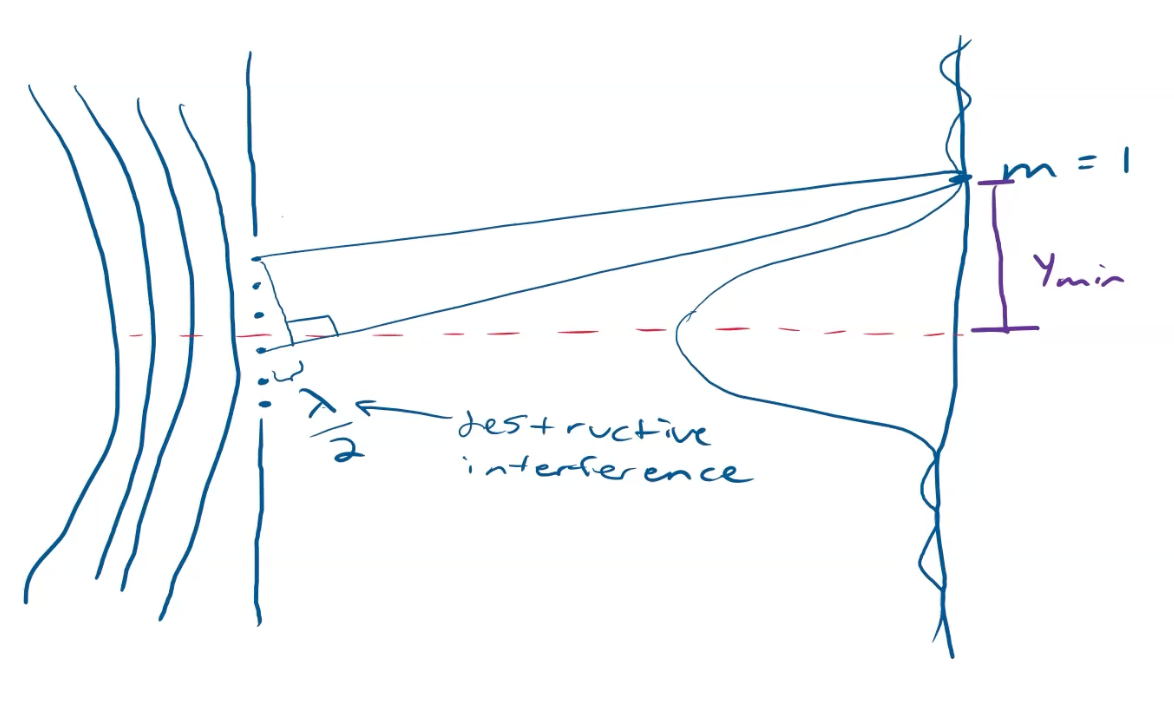 m = 1
Ymin
λ/2
destructive
interference